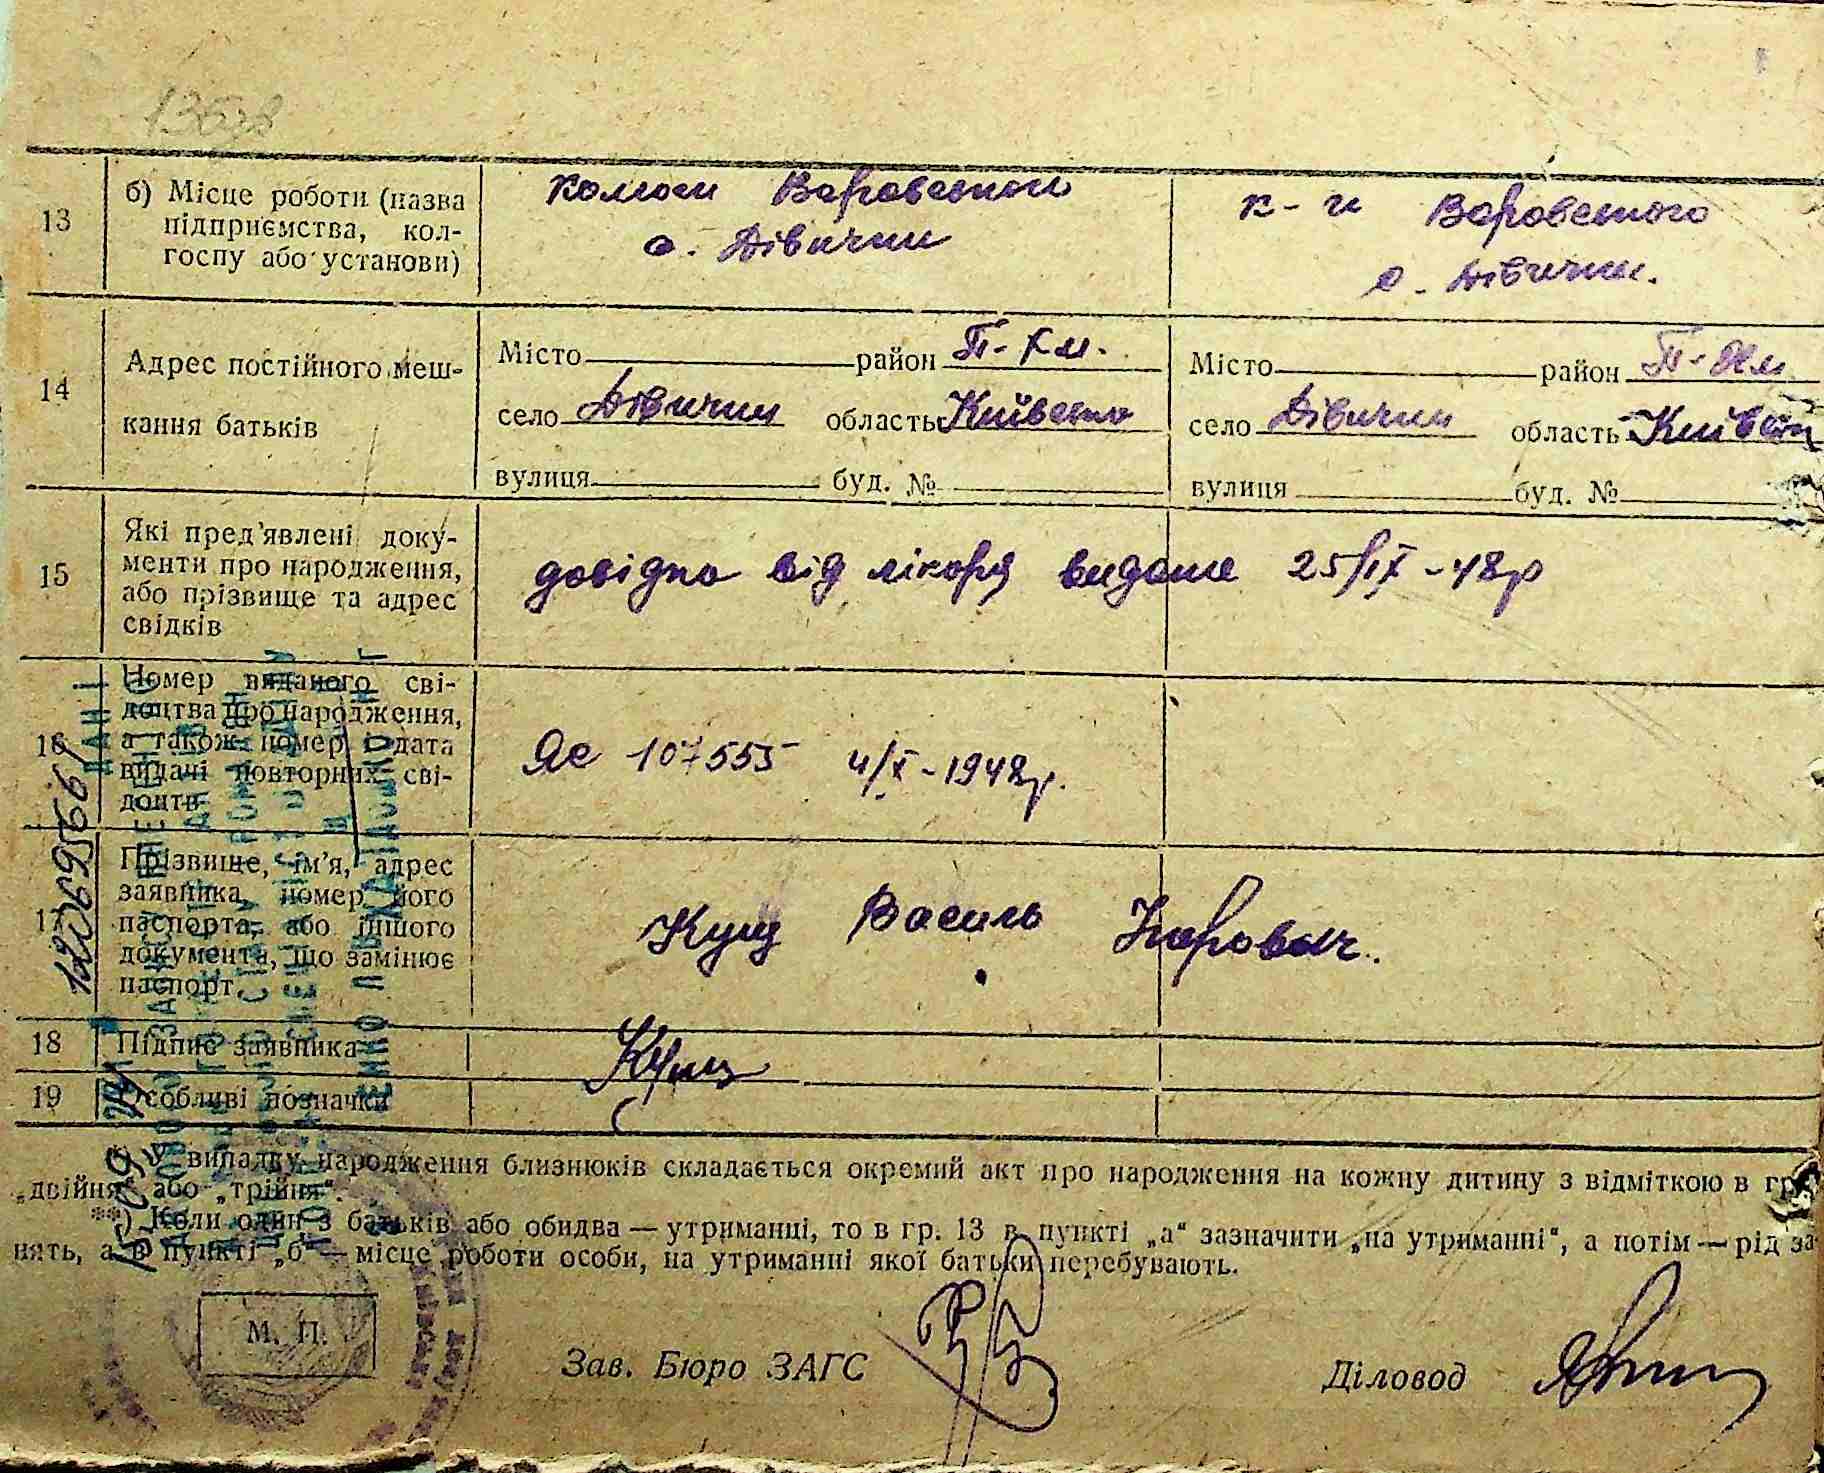 13
б) Місце роботи (назва
підприємства, кол-
госпу або установи)
колгосп Воровського
с. Дівички
к-п Воровського
с. Дівички.
14
Адрес постійного меш-
кання батьків
Місто район П-Хм.
село Дівички область Київська
вулиця буд. №
Місто район П-Хм
село Дівички область Київськ
вулиця буд. №
15
Які пред'явлені доку-
менти про народження,
або прізвище та адрес
свідків
довідка від лікаря видана 25/IX-48р
16
Номер виданого сві-
доцтва про народження,
а також номер і дата
видачі повторних сві-
доцтв
ЯС 107555 4/X-1948р.
17
Прізвище, ім'я, адрес
заявника, номер його
паспорта, або іншого
документа, що замінює
паспорт
Кущ Василь
18
Підпис заявника
Кущ
19
Особливі позначки
*) У випадку народження близнюків складається окремий акт про народження на кожну дитину з відміткою в гр.
„двійня“ або „трійня“.
**) Коли один з батьків або обидва — утриманці, то в гр. 13 в пункті „а“ зазначити „на утриманні“, а потім — рід за-
нять, а в пункті „б“ — місце роботи особи, на утриманні якої батьки перебувають.
М. П.
Зав. Бюро ЗАГС
Діловод